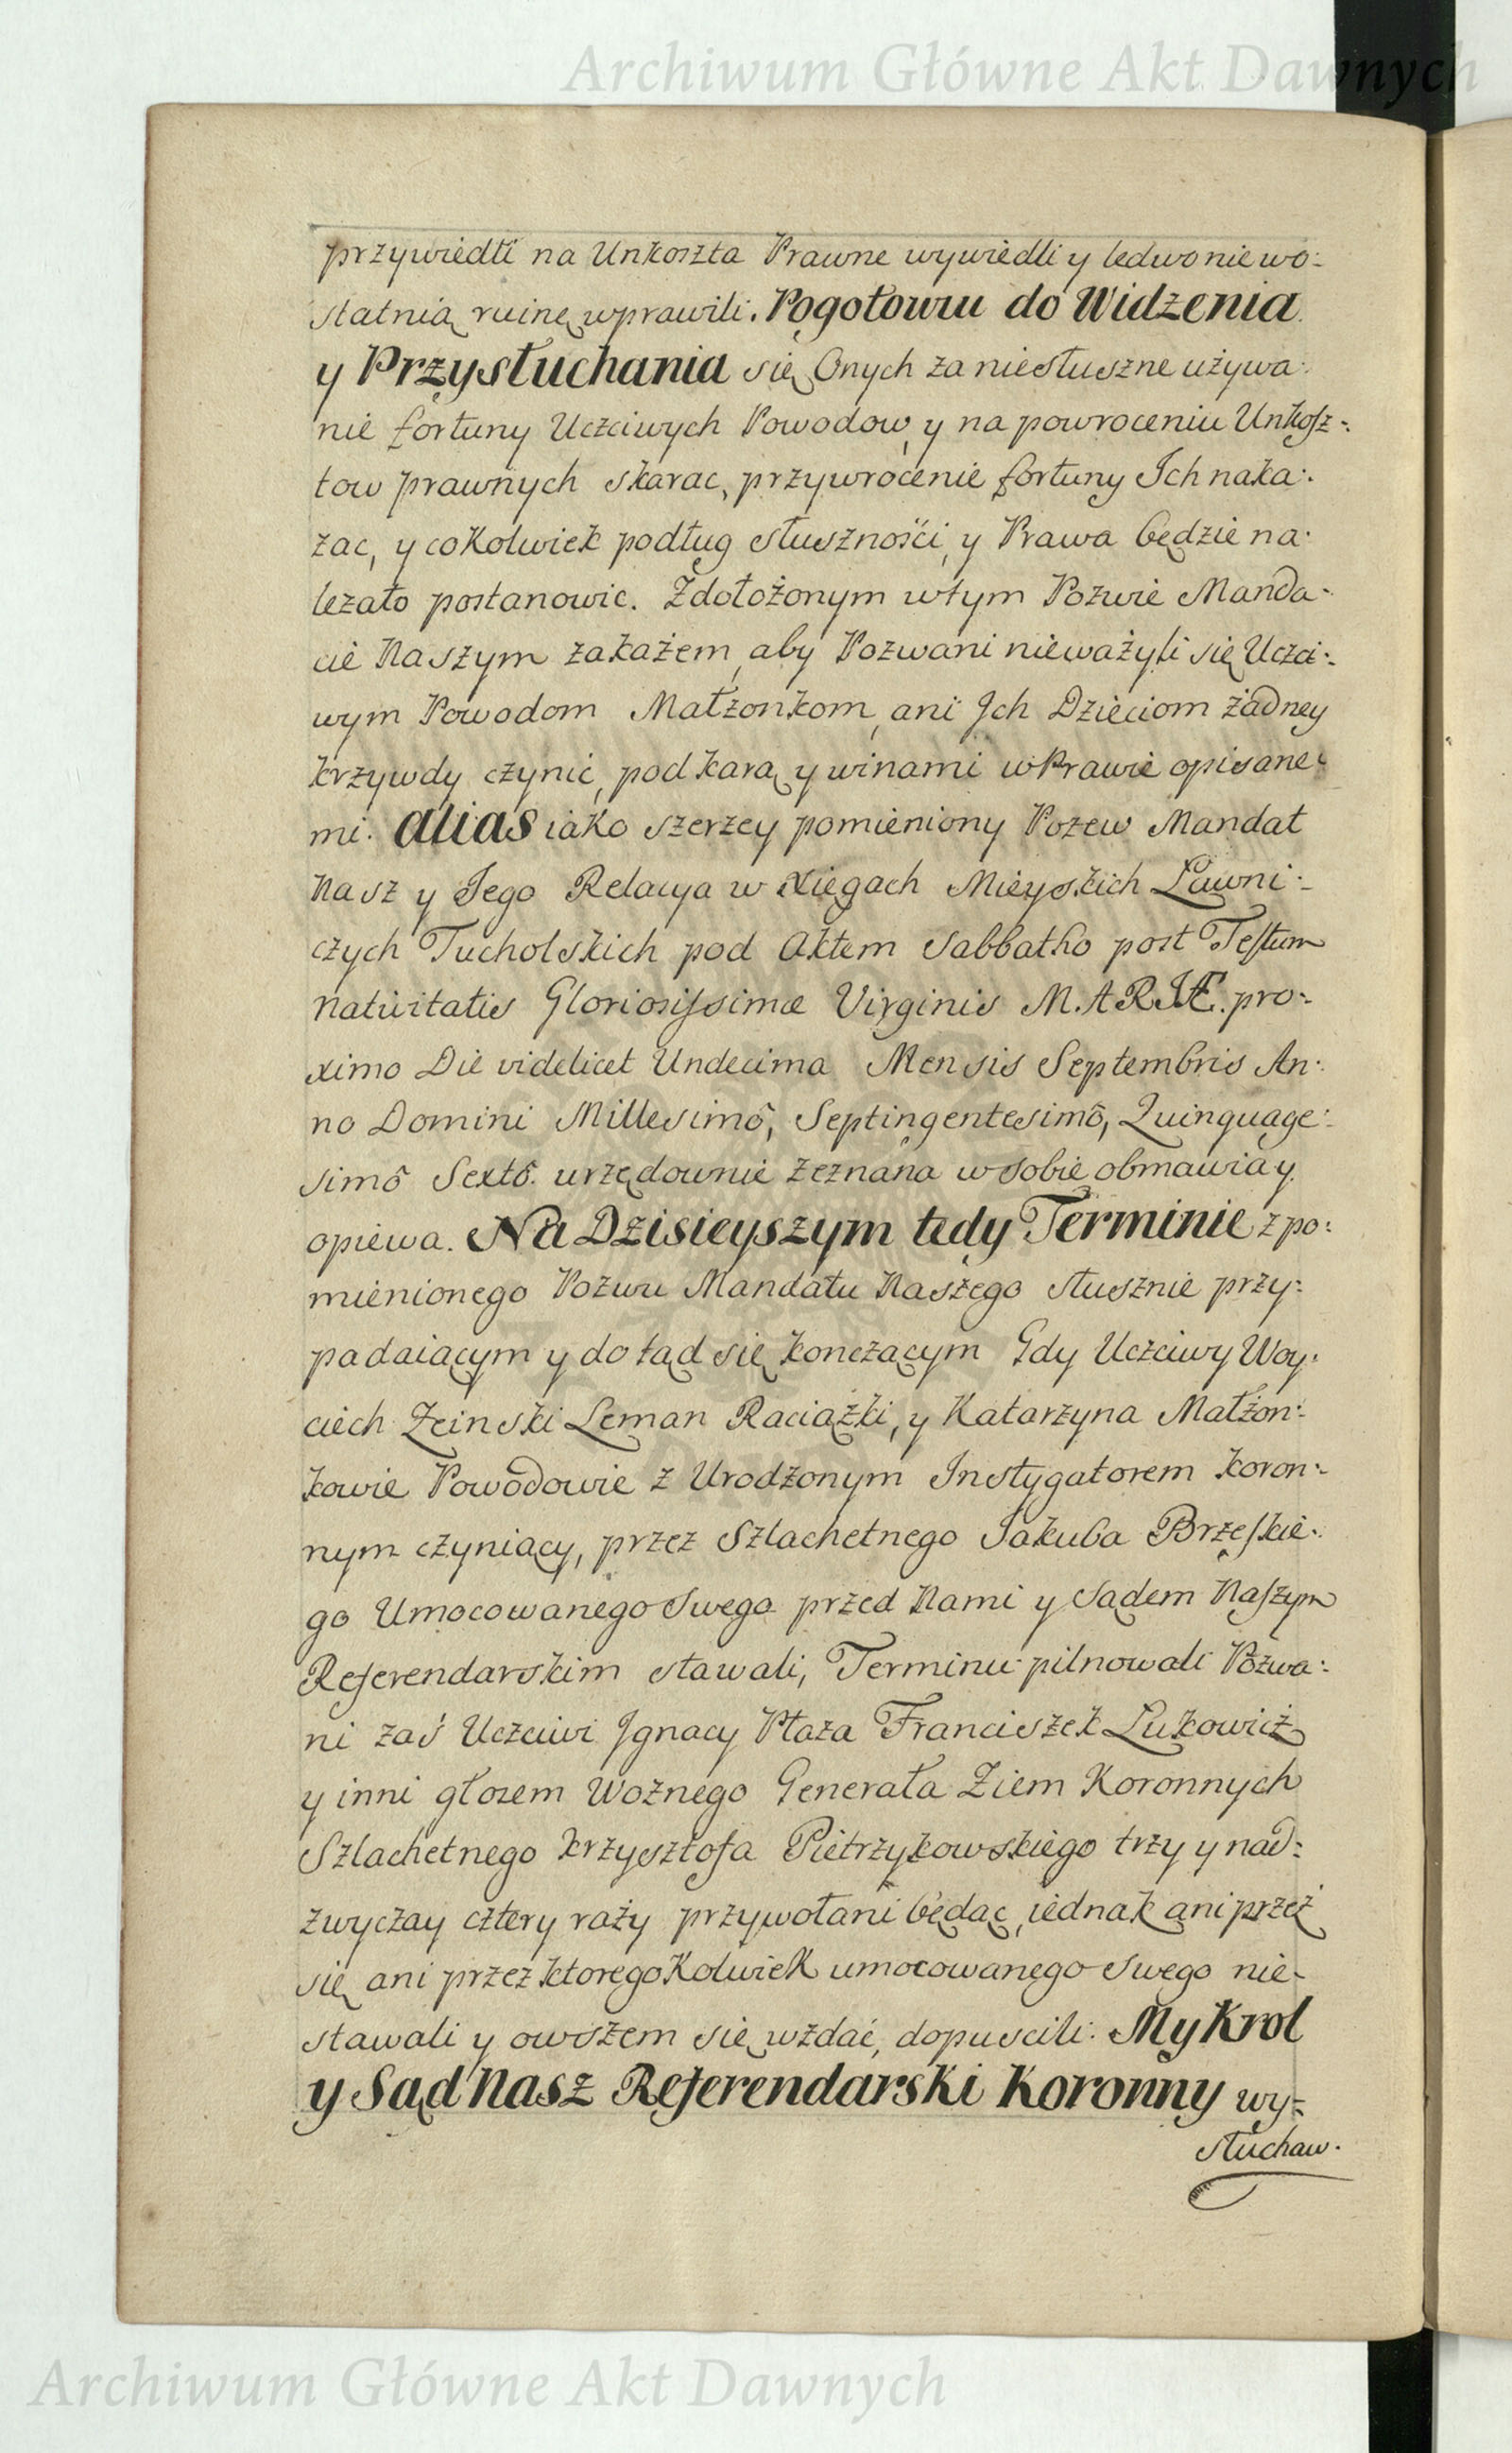 Archiwum Główne Akt Dawnych
przywiedli na Unkoszta Prawne wywiedli y ledwo nie wo:
statnią ruinę wprawili. Pogotowiu do Widzenia
y Przysłuchania się Onych za niesłuszne używa:
nie fortuny Uczciwych Powodow, y na powroceniu Unkosz:
tow prawnych skarac, przywrocenie fortuny Ich naka:
zac, y coKolwiek podług słusznośći, y Prawa będzie na:
lezało postanowic. Zdołożonym wtym Pozwie Manda:
cie Naszym zakazem, aby Pozwani nieważyli się Uczci:
wym Powodom Małzonkom, ani Ich Dzieciom żadney
krzywdy czynić, pod karą y winami w Prawie opisane:
mi. alias iako szerzey pomieniony Pozew Mandat
Nasz y Jego Relacya w Xięgach Mieyskich Ławni:
czych Tucholskich pod Aktem Sabbatho post Festum
Nativitatis Gloriosissimæ Virginis M.ARIÆ. pro:
ximo Die videlicet Undecima Mensis Septembris An:
no Domini Millesimô, Septingentesimô, Quinquage:
simô Sextô. urzędownie zeznana w sobie obmawia y
opiewa. Na Dzisieyszym tedy Terminie z po:
mienionego Pozwu Mandatu Naszego słusznie przy:
padaiącym y dotąd się konczącym Gdy Uczciwy Woy:
ciech Zeinski Leman Raciązki, y Katarzyna Małżon:
kowie Powodowie z Urodzonym Instygatorem Koron:
nym czyniący, przez Szlachetnego Jakuba Brzeskie:
go Umocowanego Swego przed Nami y Sądem Naszym
Referendarskim stawali, Terminu pilnowali Pozwa:
ni zaś Uczciwi Ignacy Płaza Franciszek Lukowicz
y inni głosem Woznego Generała Ziem Koronnych
Szlachetnego Krzysztofa Pietrzykowskiego trzy y nad:
zwyczay cztery razy przywołani będąc, iednak ani przez
się ani przez ktoregoKolwieK umocowanego Swego nie:
stawali y owszem się wzdać, dopuscili. My Krol
y Sąd Nasz Referendarski Koronny wy:
słuchaw.
Archiwum Główne Akt Dawnych